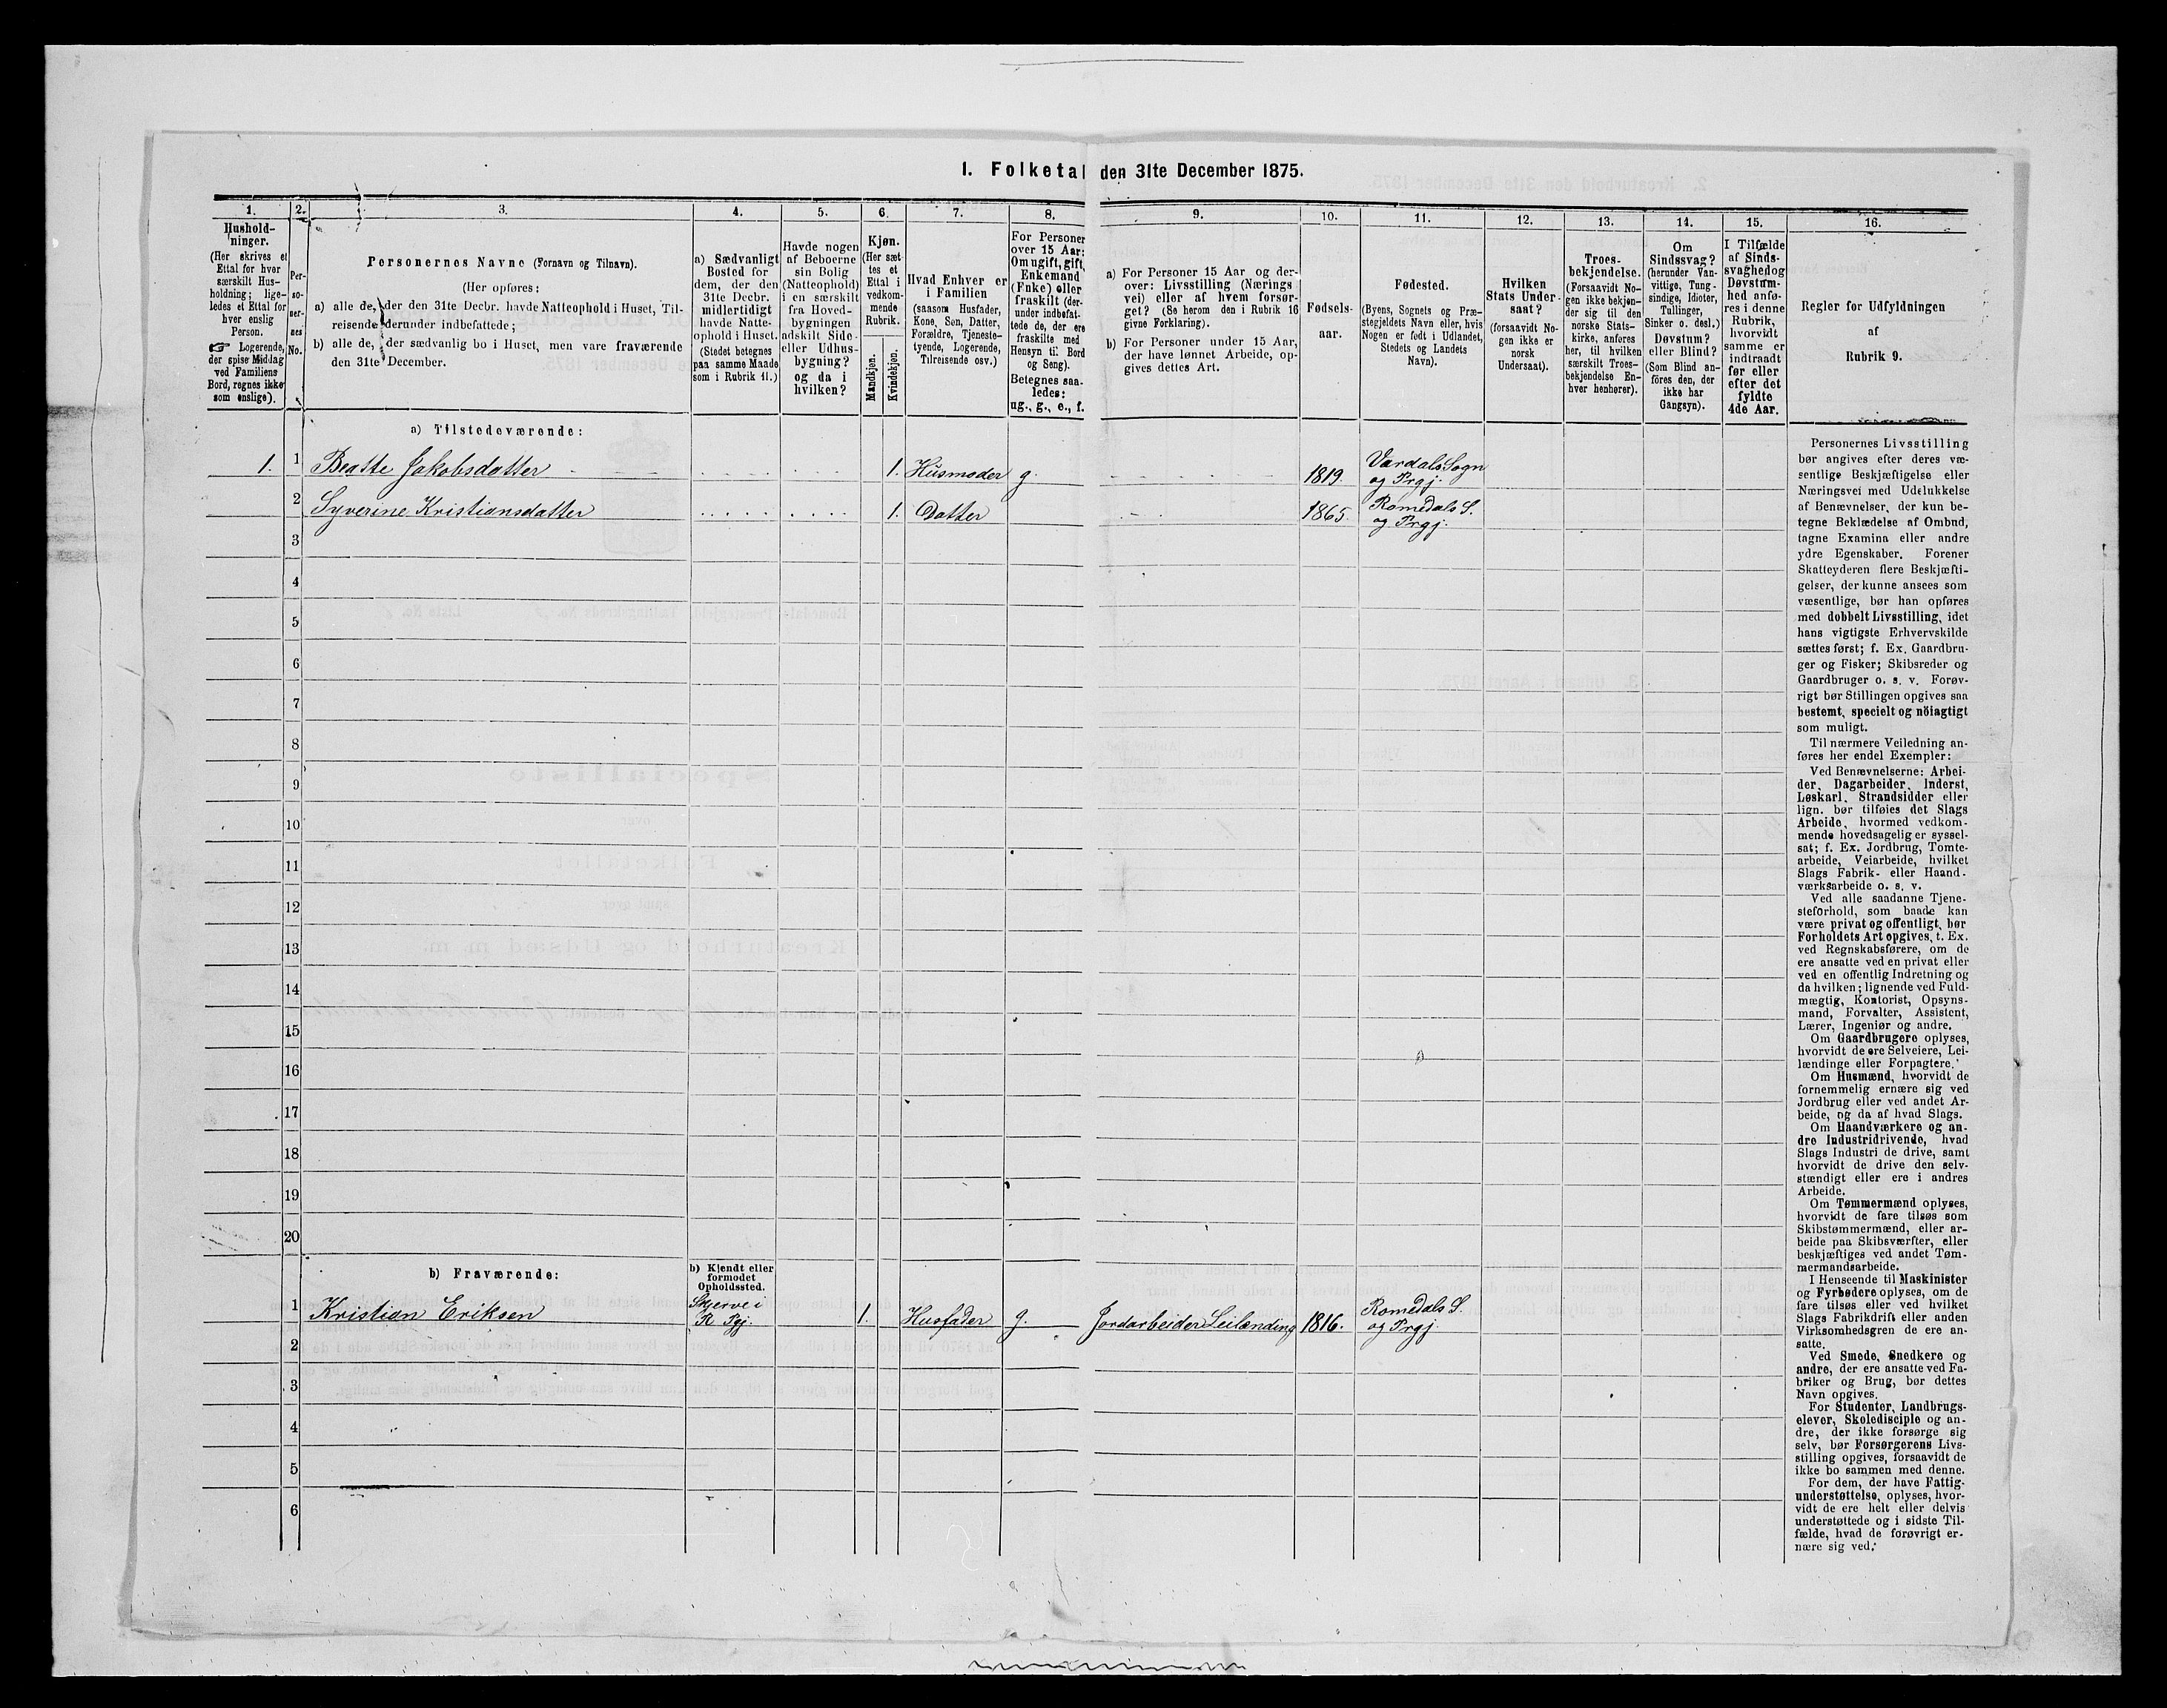 1. Folketal den 31te December 1875.
1. 2. 3. 4. 5. 6. 7. 8. 9. 10. 11. 12. 13. 14. 15. 16.
Hushold-
ninger.
(Her skrives et
Ettal for hver
særskilt Hus-
holdning; lige-
ledes et Ettal for
hver enslig
Person.
☞ Logerende,
der spise Middag
ved Familiens
Bord, regnes ikke
som enslige).
Per-
so-
ner-
nes
No.
Personernes Navne (Fornavn og Tilnavn).
(Her opføres:
a) alle de, der den 31te Decbr. havde Natteophold i Huset, Til-
reisende derunder indbefattede;
b) alle de, der sædvanlig bo i Huset, men vare fraværende
den 31te December.
a) Sædvanligt
Bosted for
dem, der den
31te Decbr.
midlertidigt
havde Natte-
ophold i Huset.
(Stedet betegnes
paa samme Maade
som i Rubrik 11.)
Havde nogen
af Beboerne
sin Bolig
(Natteophold)
i en særskilt
fra Hoved-
bygningen
adskilt Side-
eller Udhus-
bygning?
og da i
hvilken?
Kjøn.
(Her sæt-
tes et
Ettal i
vedkom-
mende
Rubrik.
Mandkjøn.
Kvindekjøn.
Hvad Enhver er
i Familien
(saasom Husfader,
Kone, Søn, Datter,
Forældre, Tjeneste-
tyende, Logerende,
Tilreisende osv.)
For Personer
over 15 Aar:
Om ugift, gift,
Enkemand
(Enke) eller
fraskilt (der-
under indbefat-
tede de, der ere
fraskilte med
Hensyn til Bord
og Seng).
Betegnes saa-
ledes:
ug., g., e., f.
a) For Personer 15 Aar og der-
over: Livsstilling (Nærings
vei) eller af hvem forsør-
get? (Se herom den i Rubrik 16
givne Forklaring).
b) For Personer under 15 Aar,
der have lønnet Arbeide, op-
gives dettes Art.
Fødsels-
aar.
Fødested.
(Byens, Sognets og Præ-
stegjeldets Navn eller, hvis
Nogen er født i Udlandet,
Stedets og Landets
Navn).
Hvilken
Stats Under-
saat?
(forsaavidt No-
gen ikke er
norsk
Undersaat).
Troes-
bekjendelse.
(Forsaavidt No-
gen ikke bekjen-
der sig til den
norske Stats-
kirke, anføres
her, til hvilken
særskilt Troes-
bekjendelse En-
hver henhører).
Om
Sindssvag?
(herunder Van-
vittige, Tung-
sindige, Idioter,
Tullinger,
Sinker o. desl.)
Døvstum?
eller Blind?
(Som Blind an-
føres den, der
ikke har
Gangsyn).
I Tilfælde
af Sinds-
svaghed og
Døvstum-
hed anfø-
res i denne
Rubrik,
hvorvidt
samme er
indtraadt
før eller
efter det
fyldte
4de Aar.
Regler for Udfyldningen
af
Rubrik 9.
a) Tilstedeværende:
1. 1 Beatte Jakobsdatter 1. Husmoder g. 1819. Vardals Sogn
og Prgj.
2 Syverine Kristiansdatter 1. Datter 1865. Romedals S.
og Prgj.
3
4
5
6
7
8
9
10
11
12
13
14
15
16
17
18
19
20
b) Fraværende:
b) Kjendt eller
formodet
Opholdssted.
1 Kristian Eriksen Skjerve i
R. Pgj. 1. Husfader g. Jordarbeider Leilænding 1816. Romedals S.
og Prgj.
2
3
4
5
6
Personernes Livsstilling
bør angives efter deres væ-
sentlige Beskjæftigelse eller
Næringsvei med Udelukkelse
af Benævnelser, der kun be-
tegne Beklædelse af Ombud,
tagne Examina eller andre
ydre Egenskaber. Forener
Skatteyderen flere Beskjæfti-
gelser, der kunne ansees som
væsentlige, bør han opføres
med dobbelt Livsstilling, idet
hans vigtigste Erhvervskilde
sættes først; f. Ex. Gaardbru-
ger og Fisker; Skibsreder og
Gaardbruger o. s. v. Forøv-
rigt bør Stillingen opgives saa
bestemt, specielt og nöiagtigt
som muligt.
Til nærmere Veiledning an-
føres her endel Exempler:
Ved Benævnelserne: Arbei-
der, Dagarbeider, Inderst,
Løskarl, Strandsidder eller
lign. bør tilføies det Slags
Arbeide, hvormed vedkom-
mende hovedsagelig er syssel-
sat; f. Ex. Jordbrug, Tomte-
arbeide, Veiarbeide, hvilket
Slags Fabrik- eller Haand-
værksarbeide o. s. v.
Ved alle saadanne Tjene-
steforhold, som baade kan
være privat og offentligt, bør
Forholdets Art opgives, t. Ex.
ved Regnskabsførere, om de
ere ansatte ved en privat eller
ved en offentlig Indretning og
da hvilken; lignende ved Fuld-
mægtig, Kontorist, Opsyns-
mand, Forvalter, Assistent,
Lærer, Ingeniør og andre.
Om Gaardbrugere oplyses,
hvorvidt de ere Selveiere, Lei-
lændinge eller Forpagtere.
Om Husmænd, hvorvidt de
fornemmelig ernære sig ved
Jordbrug eller ved andet Ar-
beide, og da af hvad Slags.
Om Haandværkere og an-
dre Industridrivende, hvad
Slags Industri de drive, samt
hvorvidt de drive den selv-
stændigt eller ere i andres
Arbeide.
Om Tømmermænd oplyses,
hvorvidt de fare tilsøs som
Skibstømmermænd, eller ar-
beide paa Skibsværfter, eller
beskjæftiges ved andet Tøm-
mermandsarbeide.
I Henseende til Maskinister
og Fyrbødere oplyses, om de
fare tilsøs eller ved hvilket
Slags Fabrikdrift eller anden
Virksomhedsgren de ere an-
satte.
Ved Smede, Snedkere og
andre, der ere ansatte ved Fa-
briker og Brug, bør dettes
Navn opgives.
For Studenter, Landbrugs-
elever, Skoledisciple og an-
dre, der ikke forsørge sig
selv, bør Forsørgerens Livs-
stilling opgives, forsaavidt de
ikke bo sammen med denne.
For dem, der have Fattig-
understøttelse, oplyses, hvor-
vidt de ere helt eller delvis
understøttede og i sidste Til-
fælde, hvad de forøvrigt er-
nære sig ved.